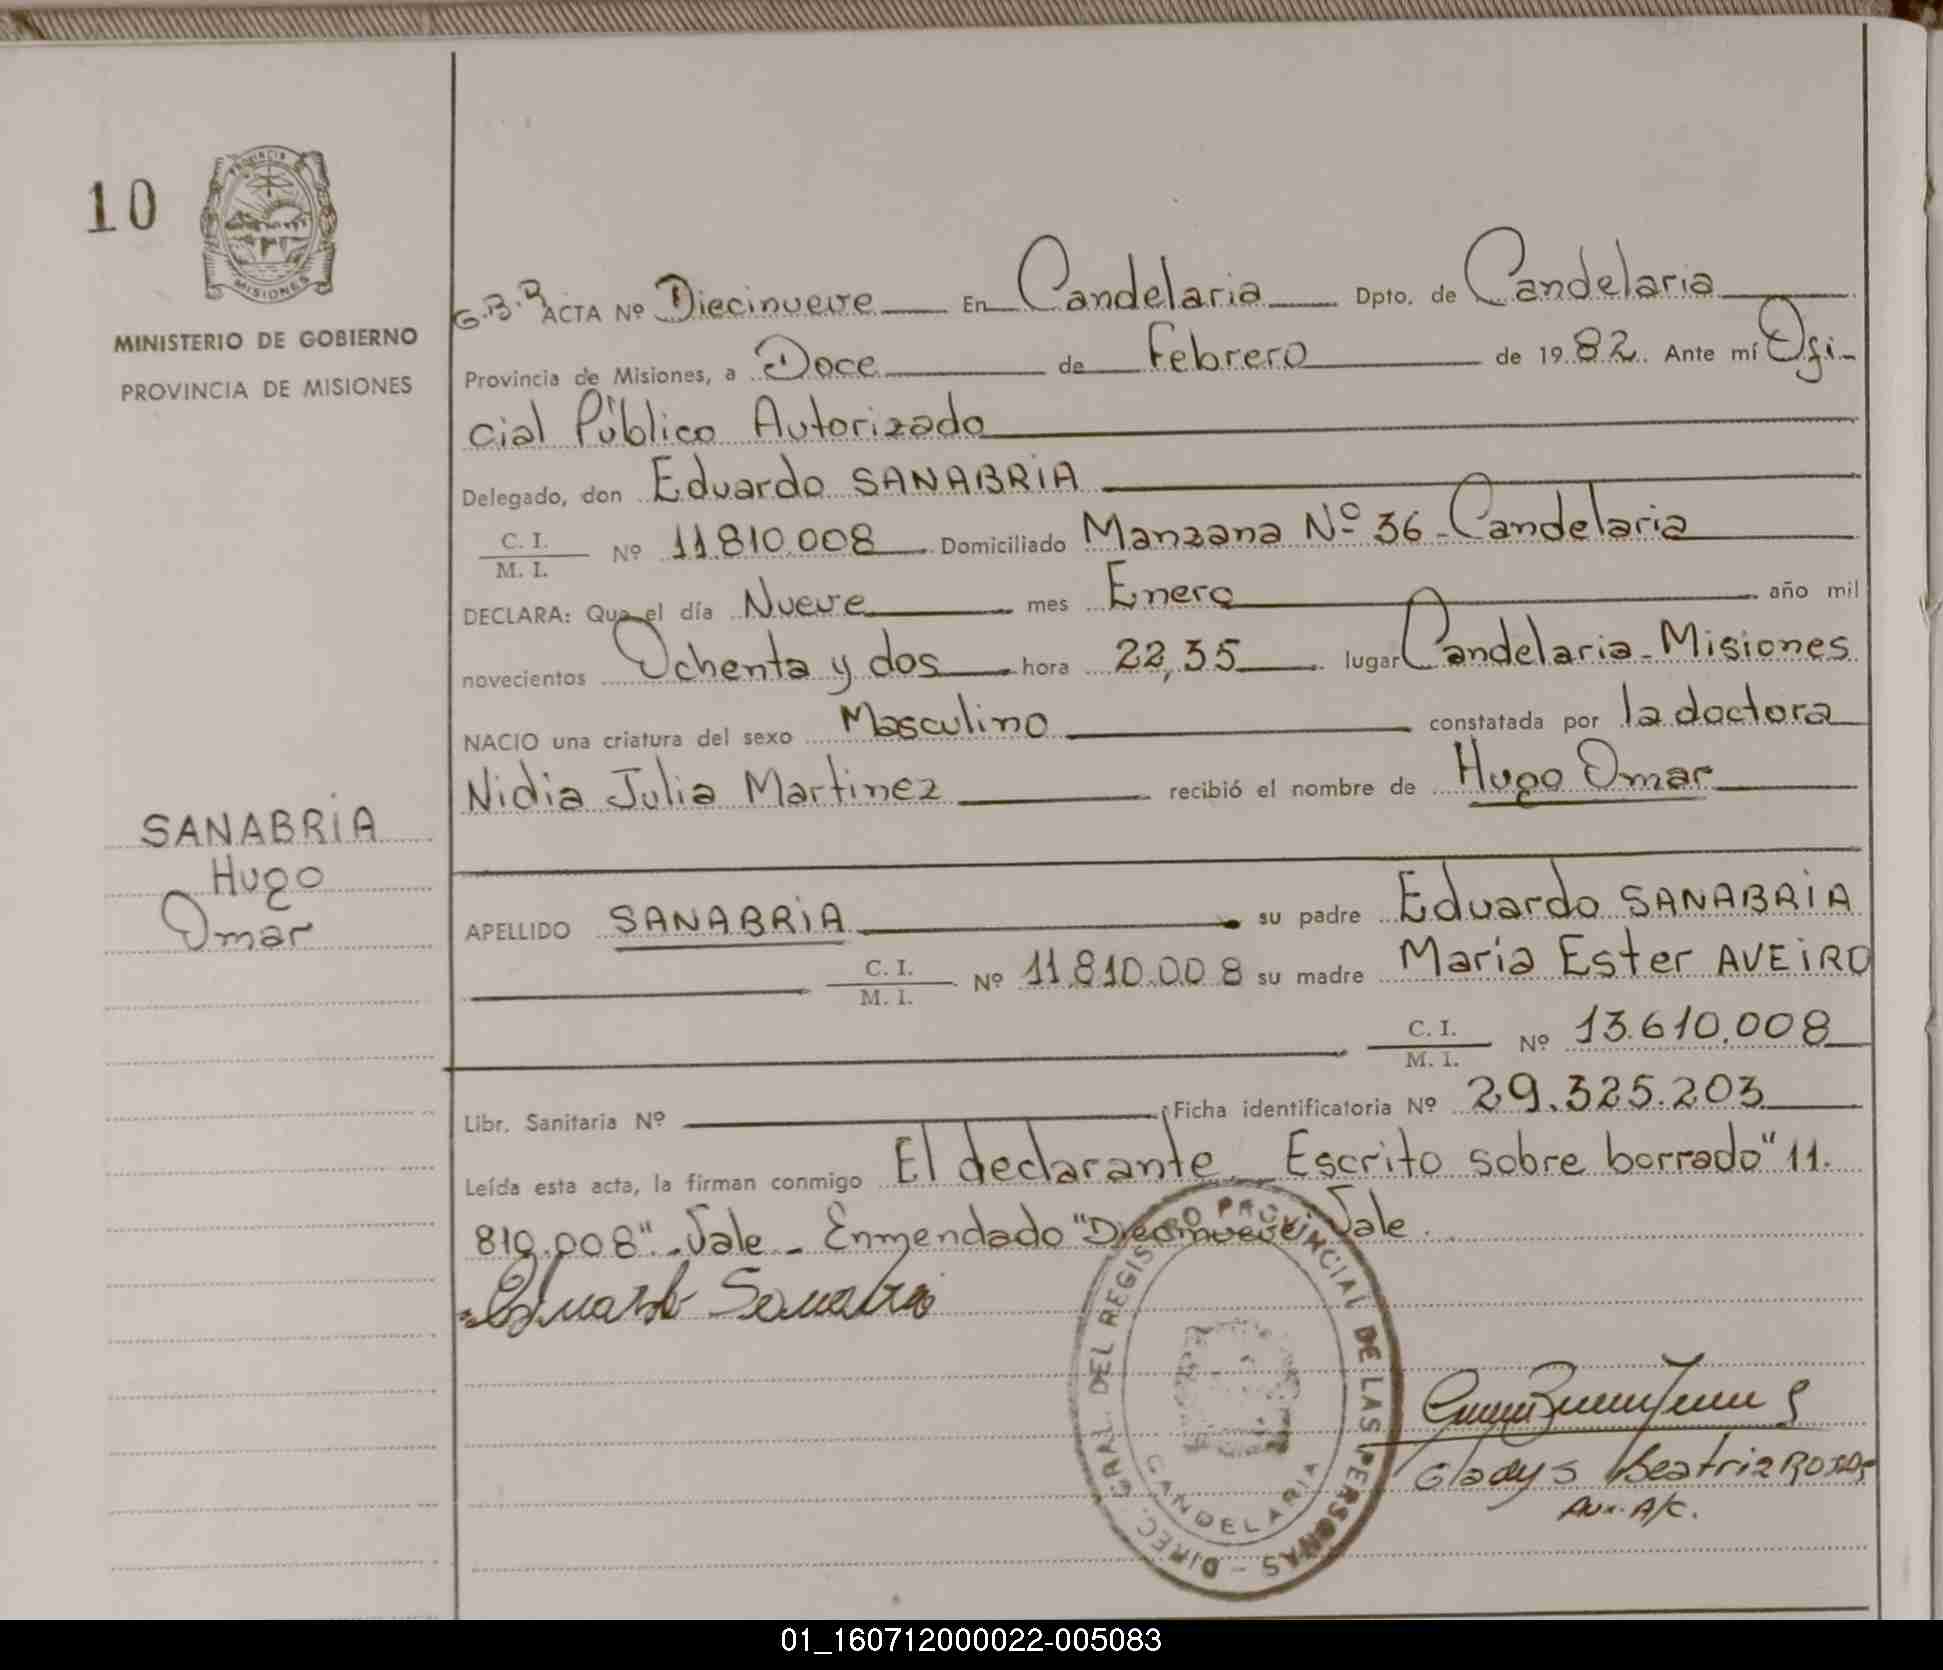 10
PROVINCIA
MISIONES
MINISTERIO DE GOBIERNO
PROVINCIA DE MISIONES
SANABRIA
Hugo
Omar
G.B.R ACTA Nº Diecinueve En Candelaria Dpto. de Candelaria
Provincia de Misiones, a Doce de Febrero de 1982. Ante mí Ofi-
cial Público Autorizado
Delegado, don Eduardo SANABRIA
C. I.
M. I. Nº 11.810.008 Domiciliado Manzana Nº 36 - Candelaria
DECLARA: Que el día Nueve mes Enero año mil
novecientos Ochenta y dos hora 22,35 lugar Candelaria - Misiones
NACIO una criatura del sexo Masculino constatada por la doctora
Nidia Julia Martinez recibió el nombre de Hugo Omar
APELLIDO SANABRIA su padre Eduardo SANABRIA
C. I.
M. I. Nº 11.810.008 su madre María Ester AVEIRO
C. I.
M. I. Nº 13.610.008
Libr. Sanitaria Nº Ficha identificatoria Nº 29.325.203
Leída esta acta, la firman conmigo El declarante _ Escrito sobre borrado "11.
810.008" - Vale - Enmendado "Diecinueve" Vale
Eduardo Sanabria
DIREC. GRAL. DEL REGISTRO PROVINCIAL DE LAS PERSONAS -
CANDELARIA
Gladys Beatriz ROJAS
Aux. A/C.
01_160712000022-005083